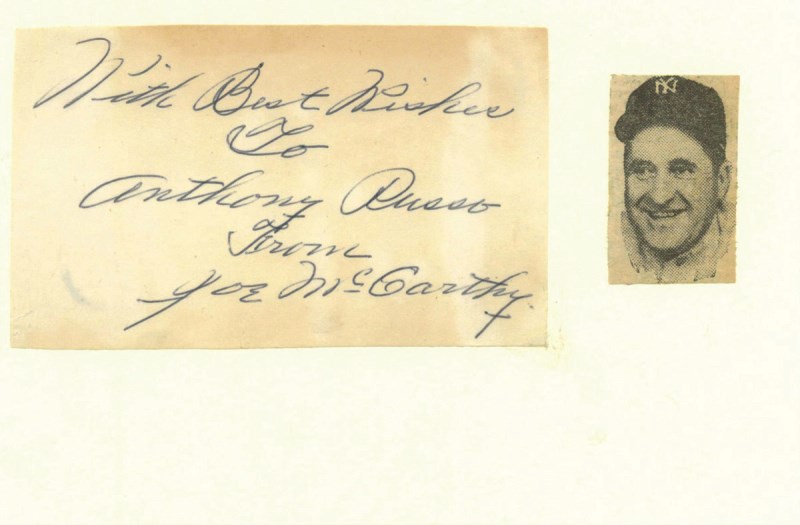 With Best Wishes
To
Anthony Russo
From
Joe McCarthy.
NY